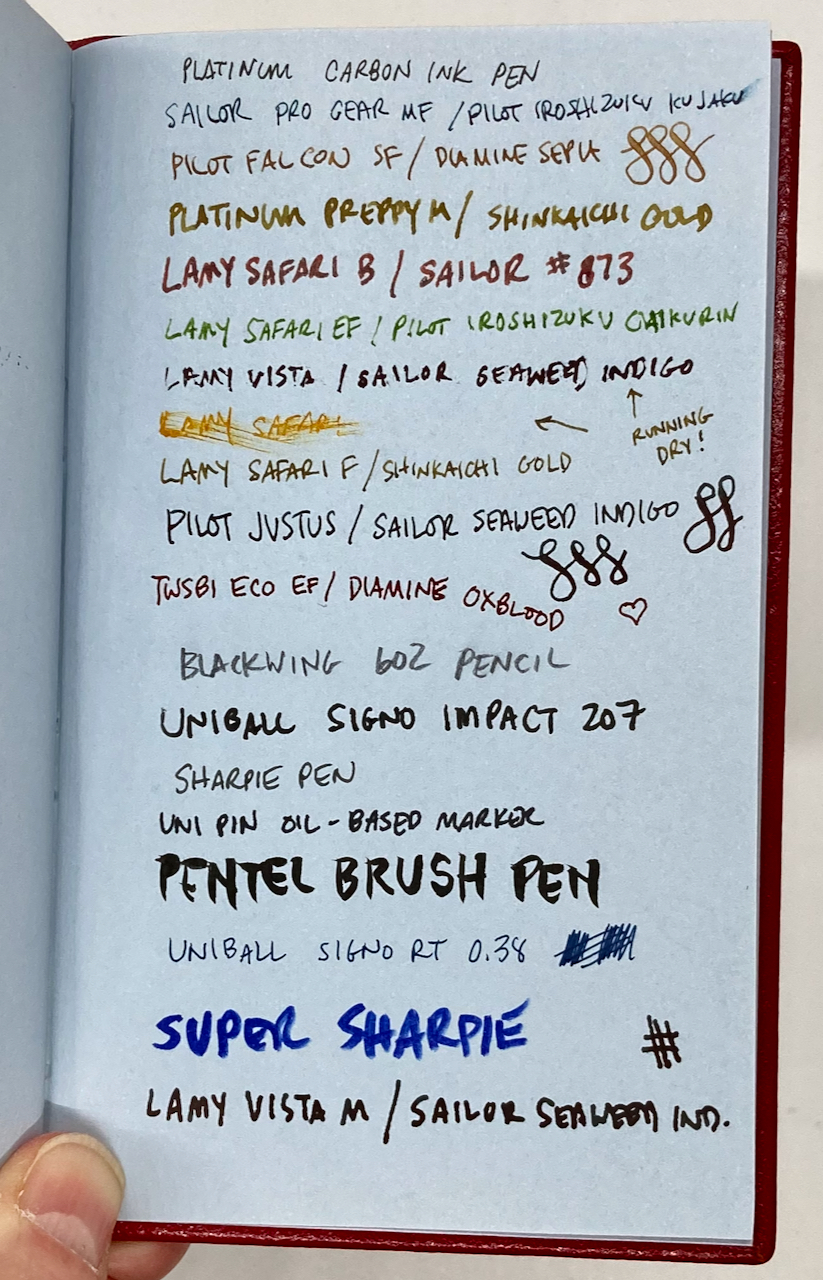 PLATINUM CARBON INK PEN
SAILOR PRO GEAR MF / PILOT IROSHIZUKU KUJAKU
PILOT FALCON SF / DIAMINE SEPIA
PLATINUM PREPPY M / SHINKAICHI GOLD
LAMY SAFARI B / SAILOR #873
LAMY SAFARI EF / PILOT IROSHIZUKU CHIKURIN
LAMY VISTA / SAILOR SEAWEED INDIGO
LAMY SAFARI
RUNNING
DRY!
LAMY SAFARI F / SHINKAICHI GOLD
PILOT JUSTUS / SAILOR SEAWEED INDIGO
TWSBI ECO EF / DIAMINE OXBLOOD
BLACKWING 602 PENCIL
UNIBALL SIGNO IMPACT 207
SHARPIE PEN
UNI PIN OIL-BASED MARKER
PENTEL BRUSH PEN
UNIBALL SIGNO RT 0.38
SUPER SHARPIE
#
LAMY VISTA M / SAILOR SEAWEED IND.